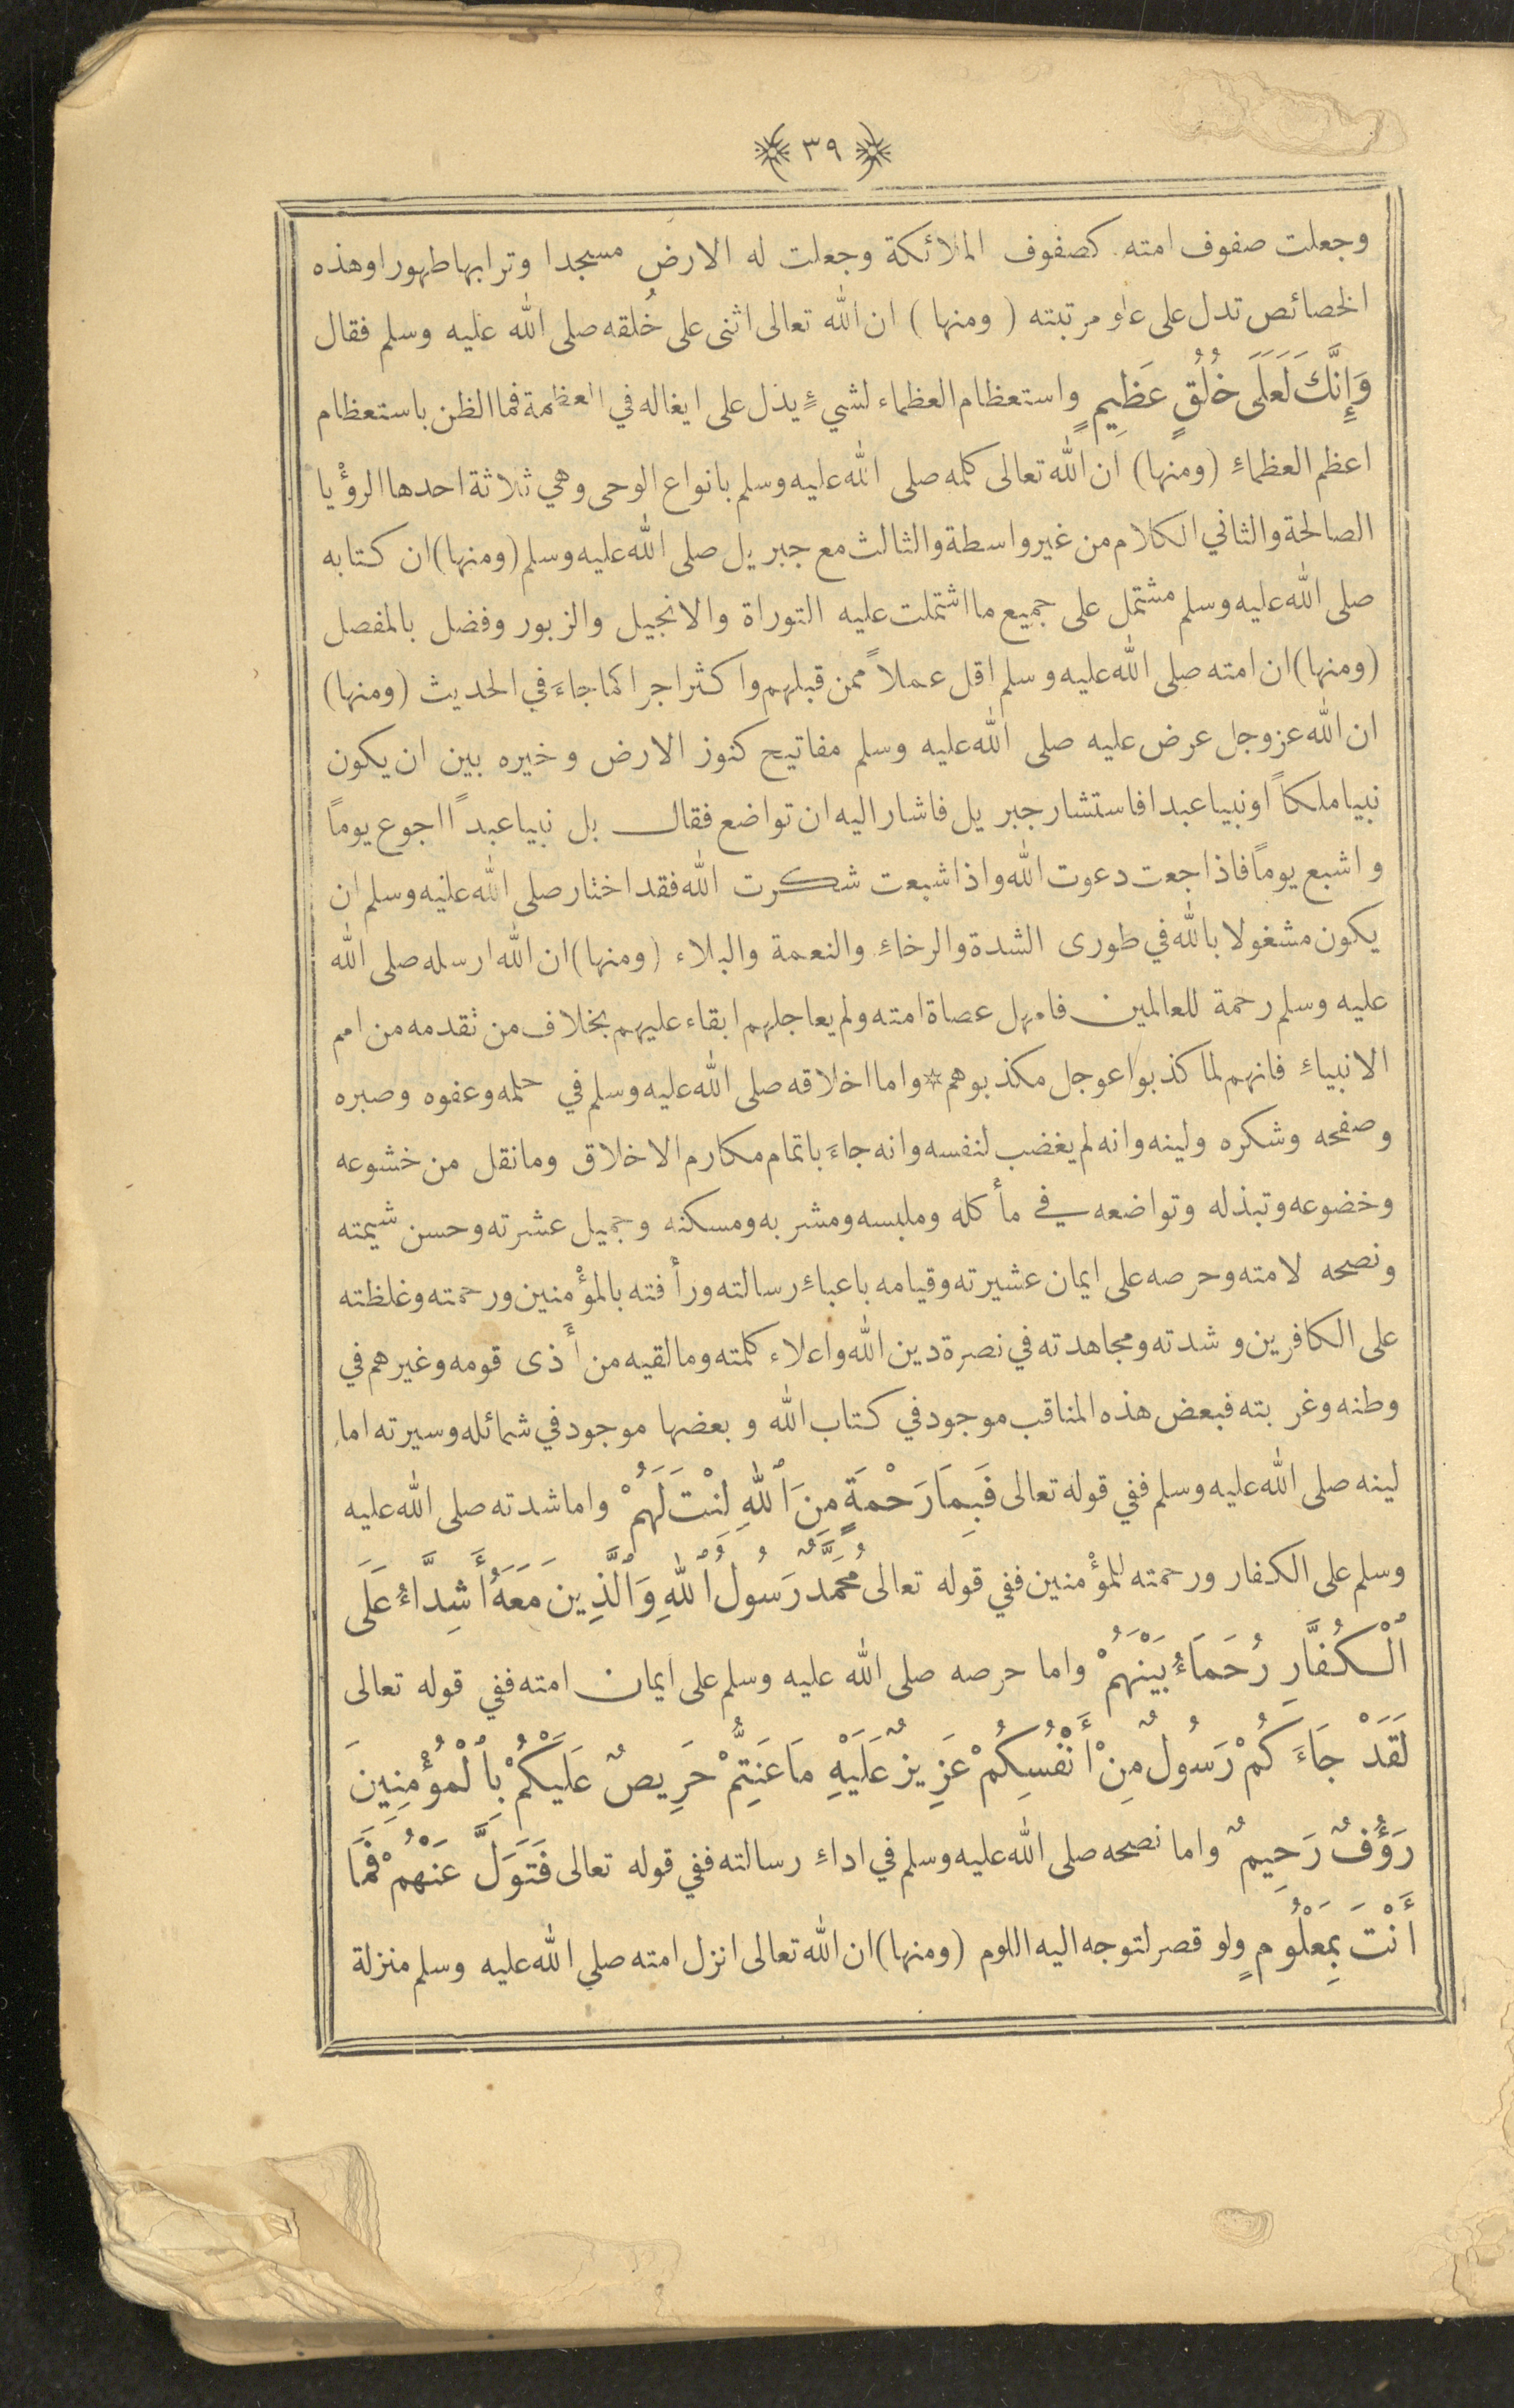 ٣٩
وجعلت صفوف امته كصفوف الملائكة وجعلت له الارض مسجدا وترابها طهورا وهذه
الخصائص تدل على علو مرتبته (ومنها) ان الله تعالى اثنى على خُلقه صلى الله عليه وسلم فقال
وَإِنَّكَ لَعَلَى خُلُقٍ عَظِيمٍ واستعظام العظماء لشيءٍ يدل على ايغاله في العظمة فما الظن باستعظام
اعظم العظماءِ (ومنها) ان الله تعالى كلمه صلى الله عليه وسلم بانواع الوحى وهي ثلاثة احدها الرؤْيا
الصالحة والثاني الكلام من غير واسطة والثالث مع جبريل صلى الله عليه وسلم (ومنها) ان كتابه
صلى الله عليه وسلم مشتمل على جميع ما اشتملت عليه التوراة والانجيل والزبور وفضل بالمفصل
(ومنها) ان امته صلى الله عليه وسلم اقل عملاً ممن قبلهم واكثر اجرا كما جاءَ في الحديث (ومنها)
ان الله عز وجل عرض عليه صلى الله عليه وسلم مفاتيح كنوز الارض وخيره بين ان يكون
نبيا ملكاً او نبيا عبدا فاستشار جبريل فاشار اليه ان تواضع فقال بل نبيا عبداً اجوع يوماً
واشبع يوماً فاذا جعت دعوت الله واذا شبعت شكرت الله فقد اختار صلى الله عليه وسلم ان
يكون مشغولا بالله في طورى الشدة والرخاءِ والنعمة والبلاء (ومنها) ان الله ارسله صلى الله
عليه وسلم رحمة للعالمين فامهل عصاة امته ولم يعاجلهم ابقاء عليهم بخلاف من تقدمه من امم
الانبياءِ فانهم لما كذبوا عوجل مكذبوهم * واما اخلاقه صلى الله عليه وسلم في حلمه وعفوه وصبره
وصفحه وشكره ولينه وانه لم يغضب لنفسه وانه جاءَ باتمام مكارم الاخلاق وما نقل من خشوعه
وخضوعه وتبذله وتواضعه في مأكله وملبسه ومشربه ومسكنه وجميل عشرته وحسن شيمته
ونصحه لامته وحرصه على ايمان عشيرته وقيامه باعباءِ رسالته ورأفته بالمؤْمنين ورحمته وغلظته
على الكافرين وشدته ومجاهدته في نصرة دين الله واعلاء كلمته وما لقيه من أَذى قومه وغيرهم في
وطنه وغربته فبعض هذه المناقب موجود في كتاب الله وبعضها موجود في شمائله وسيرته اما
لينه صلى الله عليه وسلم ففي قوله تعالى فَبِمَا رَحْمَةٍ مِنَ ٱللهِ لِنْتَ لَهُمْ واما شدته صلى الله عليه
وسلم على الكفار ورحمته للمؤْمنين ففي قوله تعالى مُحَمَّدٌ رَسُولُ ٱللهِ وَٱلَّذِينَ مَعَهُ أَشِدَّاءُ عَلَى
ٱلْكُفَّارِ رُحَمَاءُ بَيْنَهُمْ واما حرصه صلى الله عليه وسلم على ايمان امته ففي قوله تعالى
لَقَدْ جَاءَكُمْ رَسُولٌ مِنْ أَنْفُسِكُمْ عَزِيزٌ عَلَيْهِ مَا عَنِتُّمْ حَرِيصٌ عَلَيْكُمْ بِٱلْمُؤْمِنِينَ
رَؤُفٌ رَحِيمٌ واما نصحه صلى الله عليه وسلم في اداءِ رسالته ففي قوله تعالى فَتَوَلَّ عَنْهُمْ فَمَا
أَنْتَ بِمَلُومٍ ولو قصر لتوجه اليه اللوم (ومنها) ان الله تعالى انزل امته صلي الله عليه وسلم منزلة